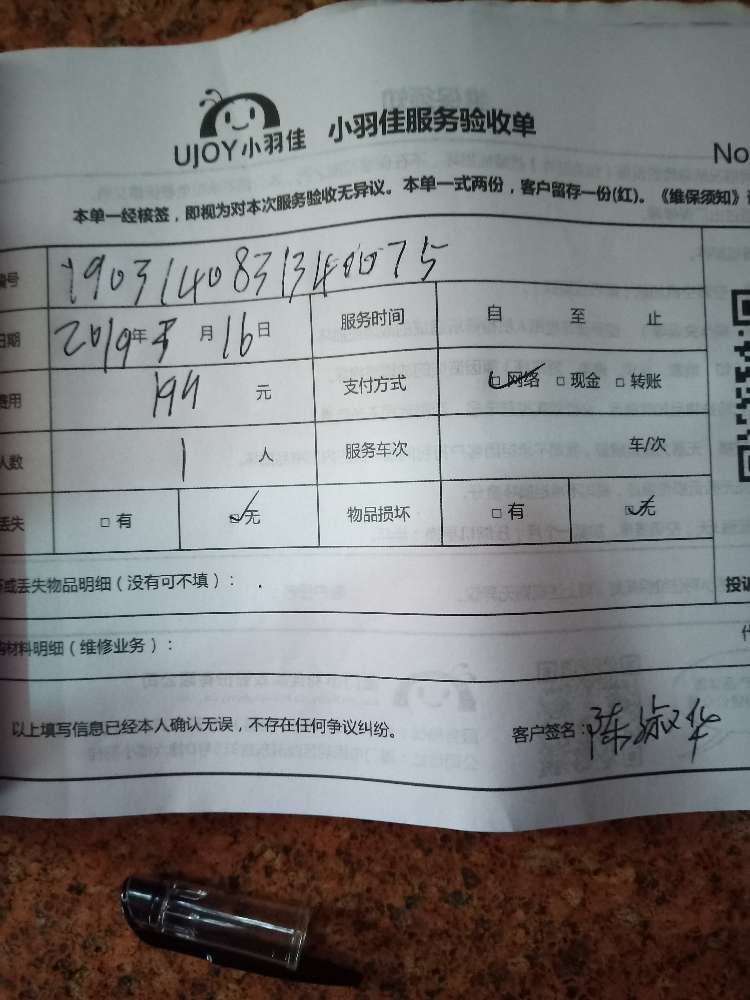 UJOY小羽佳 小羽佳服务验收单
No
本单一经核签，即视为对本次服务验收无异议。本单一式两份，客户留存一份(红)。《维保须知》
编号 1903140831340075
日期 2019年 月16日 服务时间 自 至 止
费用 元 支付方式 网络 □现金 □转账
人数 1 人 服务车次 车/次
丢失 □有 ☑无 物品损坏 □有 ☑无
或丢失物品明细（没有可不填）：
投诉
材料明细（维修业务）：
以上填写信息已经本人确认无误，不存在任何争议纠纷。 客户签名：陈淑华